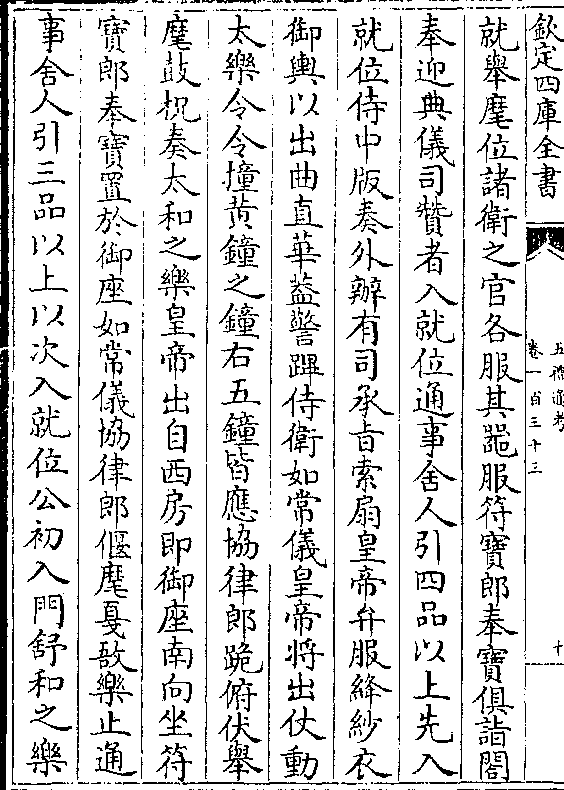 欽定四庫全書
五禮通考
卷一百三十三
十
就舉麾位諸衛之官各服其器服符寶郎奉寶俱詣閤
奉迎典儀司贊者入就位通事舍人引四品以上先入
就位侍中版奏外辦有司承旨索扇皇帝弁服絳紗衣
御輿以出曲直華葢警蹕侍衛如常儀皇帝將出仗動
太樂令令撞黃鐘之鐘右五鐘皆應協律郎跪俯伏舉
麾鼓柷奏太和之樂皇帝出自西房即御座南向坐符
寶郎奉寶置於御座如常儀協律郎偃麾戛敔樂止通
事舍人引三品以上以次入就位公初入門舒和之樂